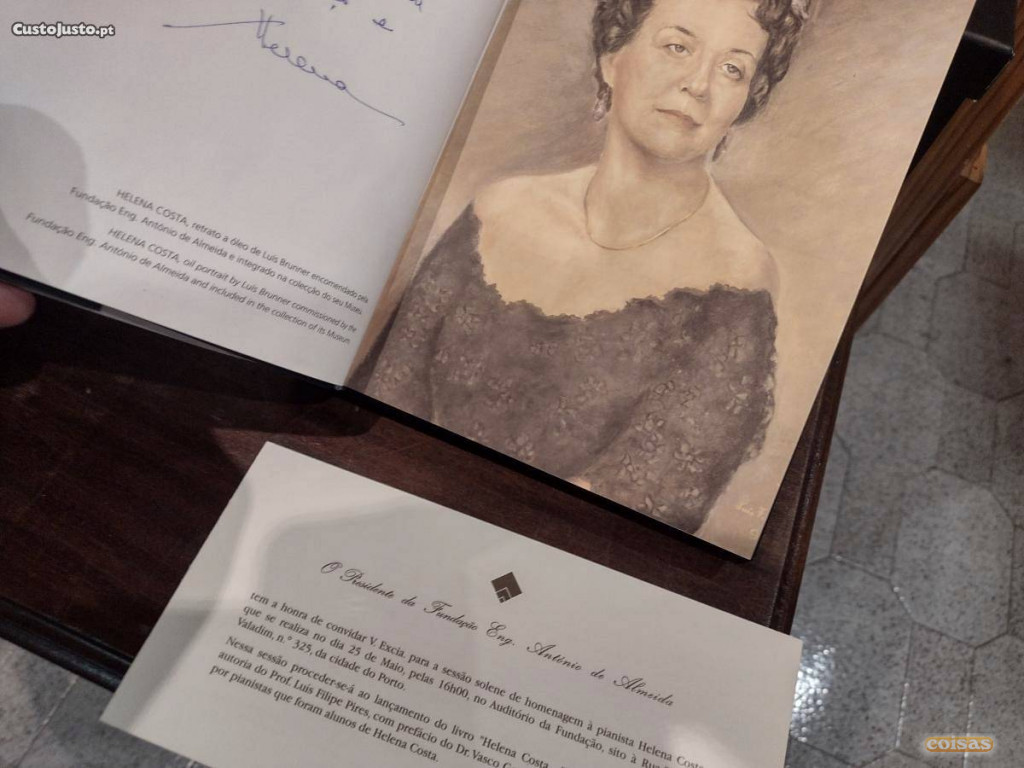 CustoJusto.pt
e
Helena
HELENA COSTA, retrato a óleo de Luís Brunner encomendado pela
Fundação Eng. António de Almeida e integrado na colecção do seu Museu
HELENA COSTA, oil portrait by Luís Brunner commissioned by the
Fundação Eng. António de Almeida and included in the collection of its Museum
O Presidente da Fundação Eng. António de Almeida
tem a honra de convidar V. Excia. para a sessão solene de homenagem à pianista Helena Costa
que se realiza no dia 25 de Maio, pelas 16h00, no Auditório da Fundação, sito à Rua
Valadim, n.º 325, da cidade do Porto.
Nessa sessão proceder-se-á ao lançamento do livro "Helena Costa
autoria do Prof. Luís Filipe Pires, com prefácio do Dr. Vasco
por pianistas que foram alunos de Helena Costa.
coisas